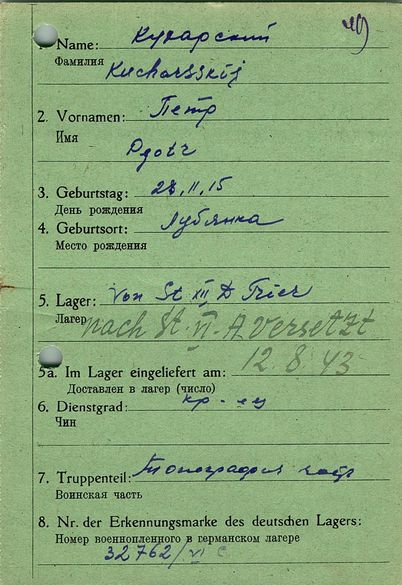 49
1. Name: Кухарский
Фамилия
Kucharsskij
2. Vornamen: Петр
Имя
Pjotr
3. Geburtstag: 28, 11, 15
День рождения
4. Geburtsort: Лубянка
Место рождения
5. Lager: von St. XII D Trier
Лагерь nach St. VI-A versetzt
12.8.43
5a. Im Lager eingeliefert am:
Доставлен в лагерь (число)
6. Dienstgrad: кр-ец
Чин
7. Truppenteil:
Воинская часть
8. Nr. der Erkennungsmarke des deutschen Lagers:
Номер военнопленного в германском лагере
32762/VI C